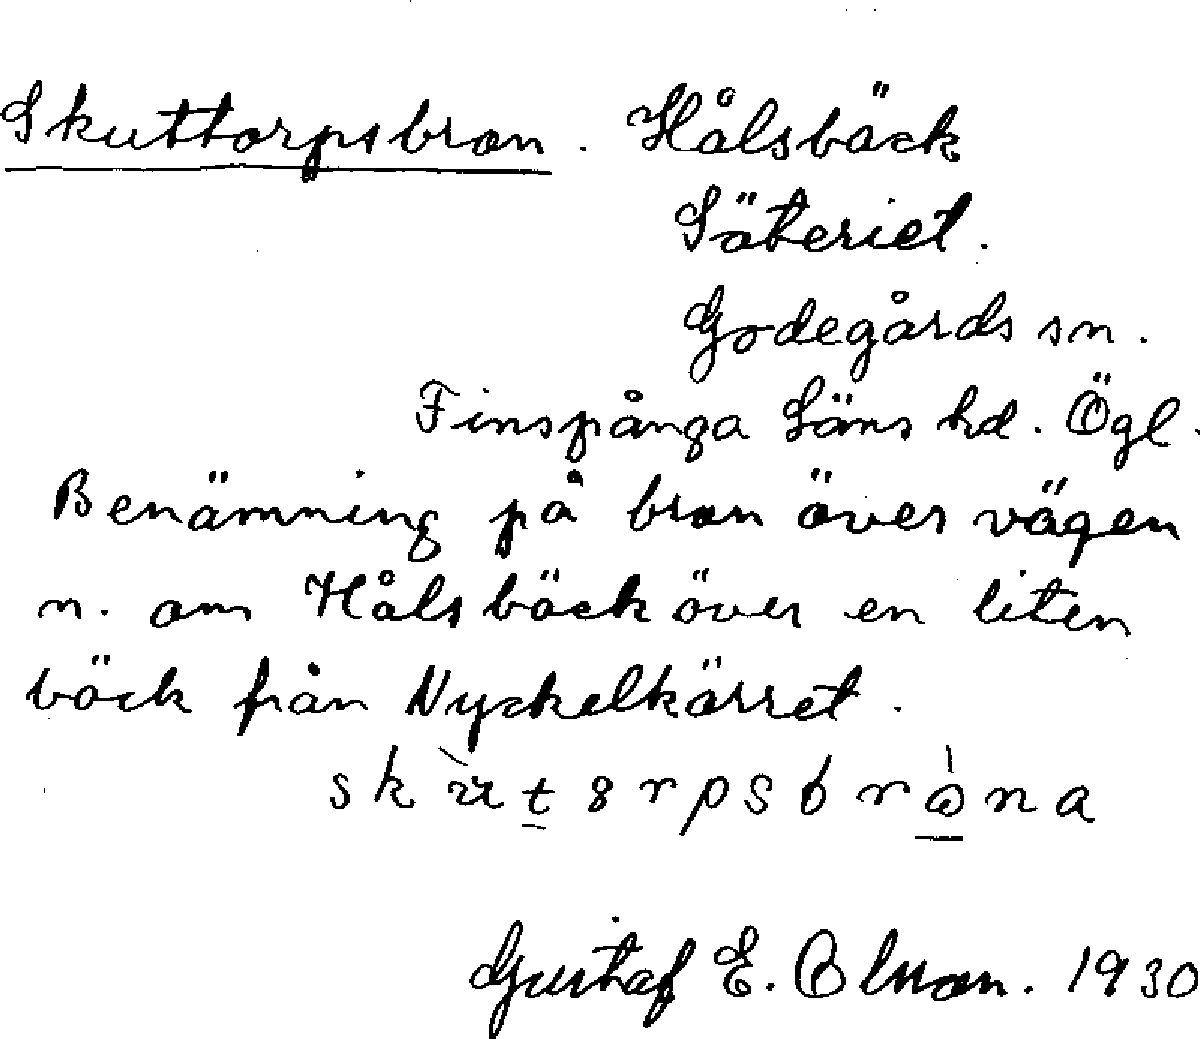 Skuttorpsbron. Hålsbäck
Säteriet.
Godegårds sn.
Finspånga Läns hd. Ögl.
Benämning på bron över vägen
n. om Hålsbäck över en liten
bäck från Nyckelkärret.
Gustaf E. Olson. 1930